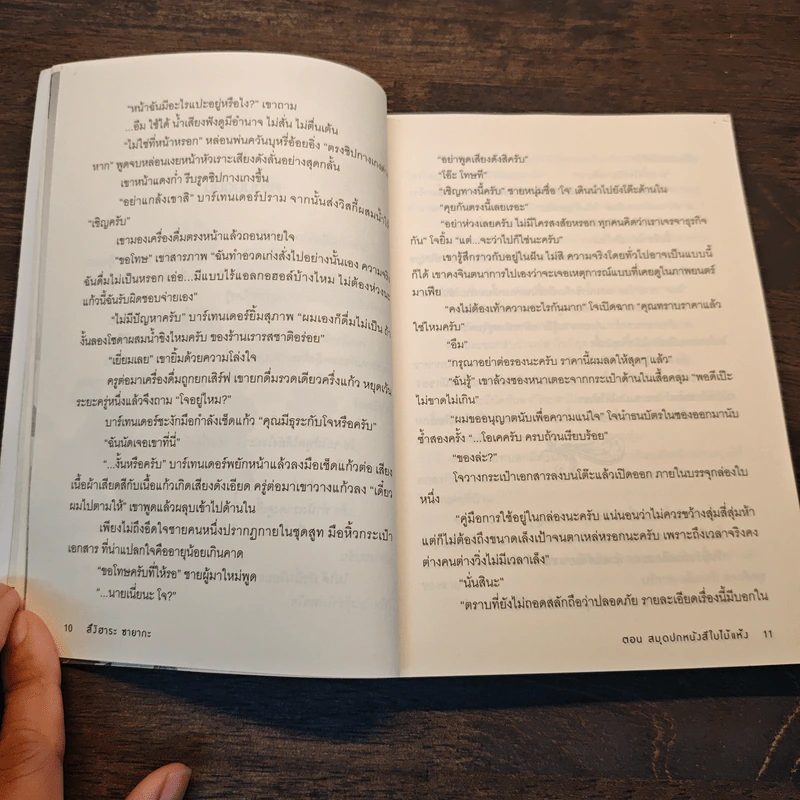 "หน้าฉันมีอะไรแปะอยู่หรือไง?" เขาถาม
...อืม ใช้ได้ น้ำเสียงฟังดูมีอำนาจ ไม่สั่น ไม่ตื่นเต้น
"ไม่ใช่ที่หน้าหรอก" หล่อนพ่นควันบุหรี่อ้อยอิ่ง "ตรงซิปกางเกง
หาก" พูดจบหล่อนเงยหน้าหัวเราะเสียงดังลั่นอย่างสุดกลั้น
เขาหน้าแดงก่ำ รีบรูดซิปกางเกงขึ้น
"อย่าแกล้งเขาสิ" บาร์เทนเดอร์ปราม จากนั้นส่งวิสกี้ผสมน้ำให้
"เชิญครับ"
เขามองเครื่องดื่มตรงหน้าแล้วถอนหายใจ
"ขอโทษ" เขาสารภาพ "ฉันทำอวดเก่งสั่งไปอย่างนั้นเอง ความจริง
ฉันดื่มไม่เป็นหรอก เอ่อ...มีแบบไร้แอลกอฮอล์บ้างไหม ไม่ต้องห่วงนะ
แก้วนี้ฉันรับผิดชอบจ่ายเอง"
"ไม่มีปัญหาครับ" บาร์เทนเดอร์ยิ้มสุภาพ "ผมเองก็ดื่มไม่เป็น ถ้า
งั้นลองโซดาผสมน้ำขิงไหมครับ ของร้านเรารสชาติอร่อย"
"เยี่ยมเลย" เขายิ้มด้วยความโล่งใจ
ครู่ต่อมาเครื่องดื่มถูกยกเสิร์ฟ เขายกดื่มรวดเดียวครึ่งแก้ว หยุดเว้น
ระยะครู่หนึ่งแล้วจึงถาม "โจอยู่ไหม?"
บาร์เทนเดอร์ชะงักมือกำลังเช็ดแก้ว "คุณมีธุระกับโจหรือครับ"
"ฉันนัดเจอเขาที่นี่"
"...งั้นหรือครับ" บาร์เทนเดอร์พยักหน้าแล้วลงมือเช็ดแก้วต่อ เสียง
เนื้อผ้าเสียดสีกับเนื้อแก้วเกิดเสียงดังเอียด ครู่ต่อมาเขาวางแก้วลง "เดี๋ยว
ผมไปตามให้" เขาพูดแล้วผลุบเข้าไปด้านใน
เพียงไม่ถึงอึดใจชายคนหนึ่งปรากฏกายในชุดสูท มือหิ้วกระเป๋า
เอกสาร ที่น่าแปลกใจคืออายุน้อยเกินคาด
"ขอโทษครับที่ให้รอ" ชายผู้มาใหม่พูด
"...นายเนี่ยนะ โจ?"
10 สึงิฮาระ ซายากะ
"อย่าพูดเสียงดังสิครับ"
"โอ๊ะ โทษที"
"เชิญทางนี้ครับ" ชายหนุ่มชื่อ 'โจ' เดินนำไปยังโต๊ะด้านใน
"คุยกันตรงนี้เลยเรอะ"
"อย่าห่วงเลยครับ ไม่มีใครสงสัยหรอก ทุกคนคิดว่าเราเจรจาธุรกิจ
กัน" โจยิ้ม "แต่...จะว่าไปก็ใช่นะครับ"
เขารู้สึกราวกับอยู่ในฝัน ไม่สิ ความจริงโดยทั่วไปอาจเป็นแบบนี้
ก็ได้ เขาคงจินตนาการไปเองว่าจะเจอเหตุการณ์แบบที่เคยดูในภาพยนตร์
มาเฟีย
"คงไม่ต้องเท้าความอะไรกันมาก" โจเปิดฉาก "คุณทราบราคาแล้ว
ใช่ไหมครับ"
"อืม"
"กรุณาอย่าต่อรองนะครับ ราคานี้ผมลดให้สุดๆ แล้ว"
"ฉันรู้" เขาล้วงซองหนาเตอะจากกระเป๋าด้านในเสื้อคลุม "พอดีเป๊ะ
ไม่ขาดไม่เกิน"
"ผมขออนุญาตนับเพื่อความแน่ใจ" โจนำธนบัตรในซองออกมานับ
ซ้ำสองครั้ง "...โอเคครับ ครบถ้วนเรียบร้อย"
"ของล่ะ?"
โจวางกระเป๋าเอกสารลงบนโต๊ะแล้วเปิดออก ภายในบรรจุกล่องใบ
หนึ่ง
"คู่มือการใช้อยู่ในกล่องนะครับ แน่นอนว่าไม่ควรขว้างสุ่มสี่สุ่มห้า
แต่ก็ไม่ต้องถึงขนาดเล็งเป้าจนตาเหล่หรอกนะครับ เพราะถึงเวลาจริงคง
ต่างคนต่างวิ่งไม่มีเวลาเล็ง"
"นั่นสินะ"
"ตราบที่ยังไม่ถอดสลักถือว่าปลอดภัย รายละเอียดเรื่องนี้มีบอกใน
ตอน สมุดปกหนังสีใบไม้แห้ง 11